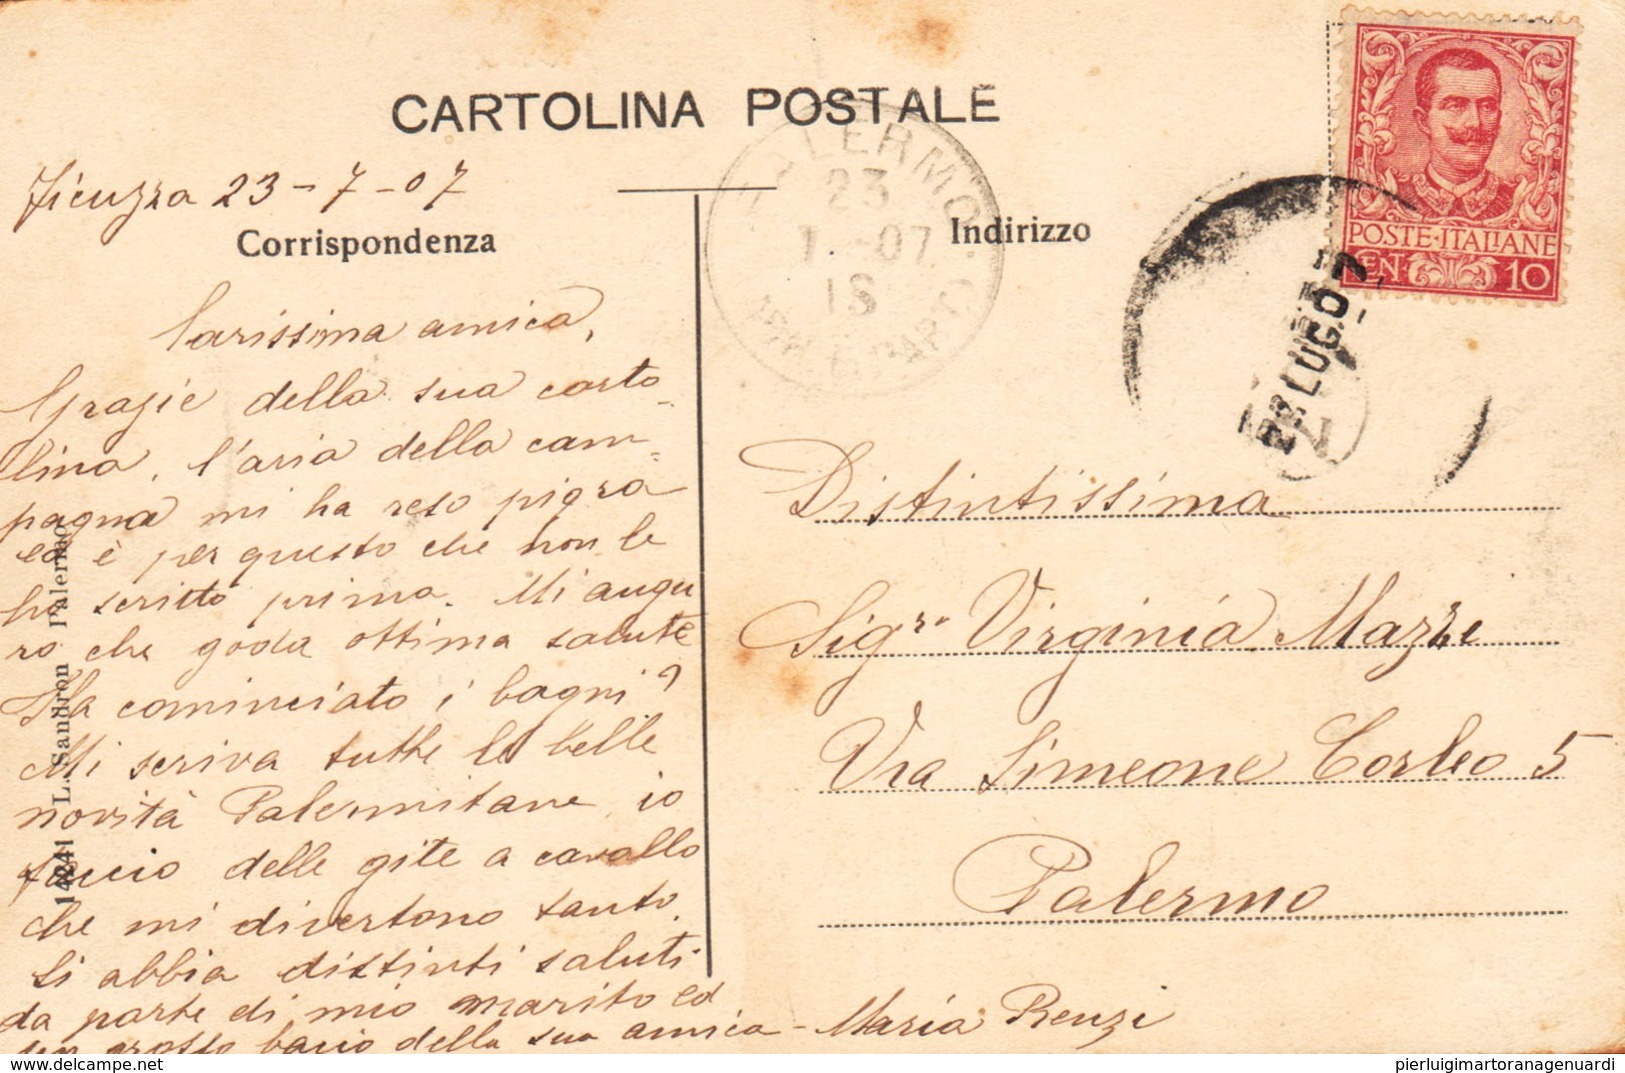 CARTOLINA POSTALE
Ficuzza 23-7-07
Corrispondenza
Indirizzo
PALERMO
23
7-07
18
POSTE·ITALIANE
CEN. 10
LUG 07
Carissima amica,
Grazie della sua carto
lina, l'aria della cam
pagna mi ha reso pigra
ed è per questo che non le
ho scritto prima. Mi augu
ro che goda ottima salute
Ha cominciato i bagni?
Mi scriva tutte le belle
novità Palermitane, io
faccio delle gite a cavallo
che mi divertono tanto.
Si abbia distinti saluti
da parte di mio marito ed
un grosso bacio della sua amica - Maria Renzi
Distintissima
Sigra Virginia Mazze
Via Simeone Corleo 5
Palermo
14241 L. Sandron Palermo
delcampe.net
pierluigimartoranagenuardi